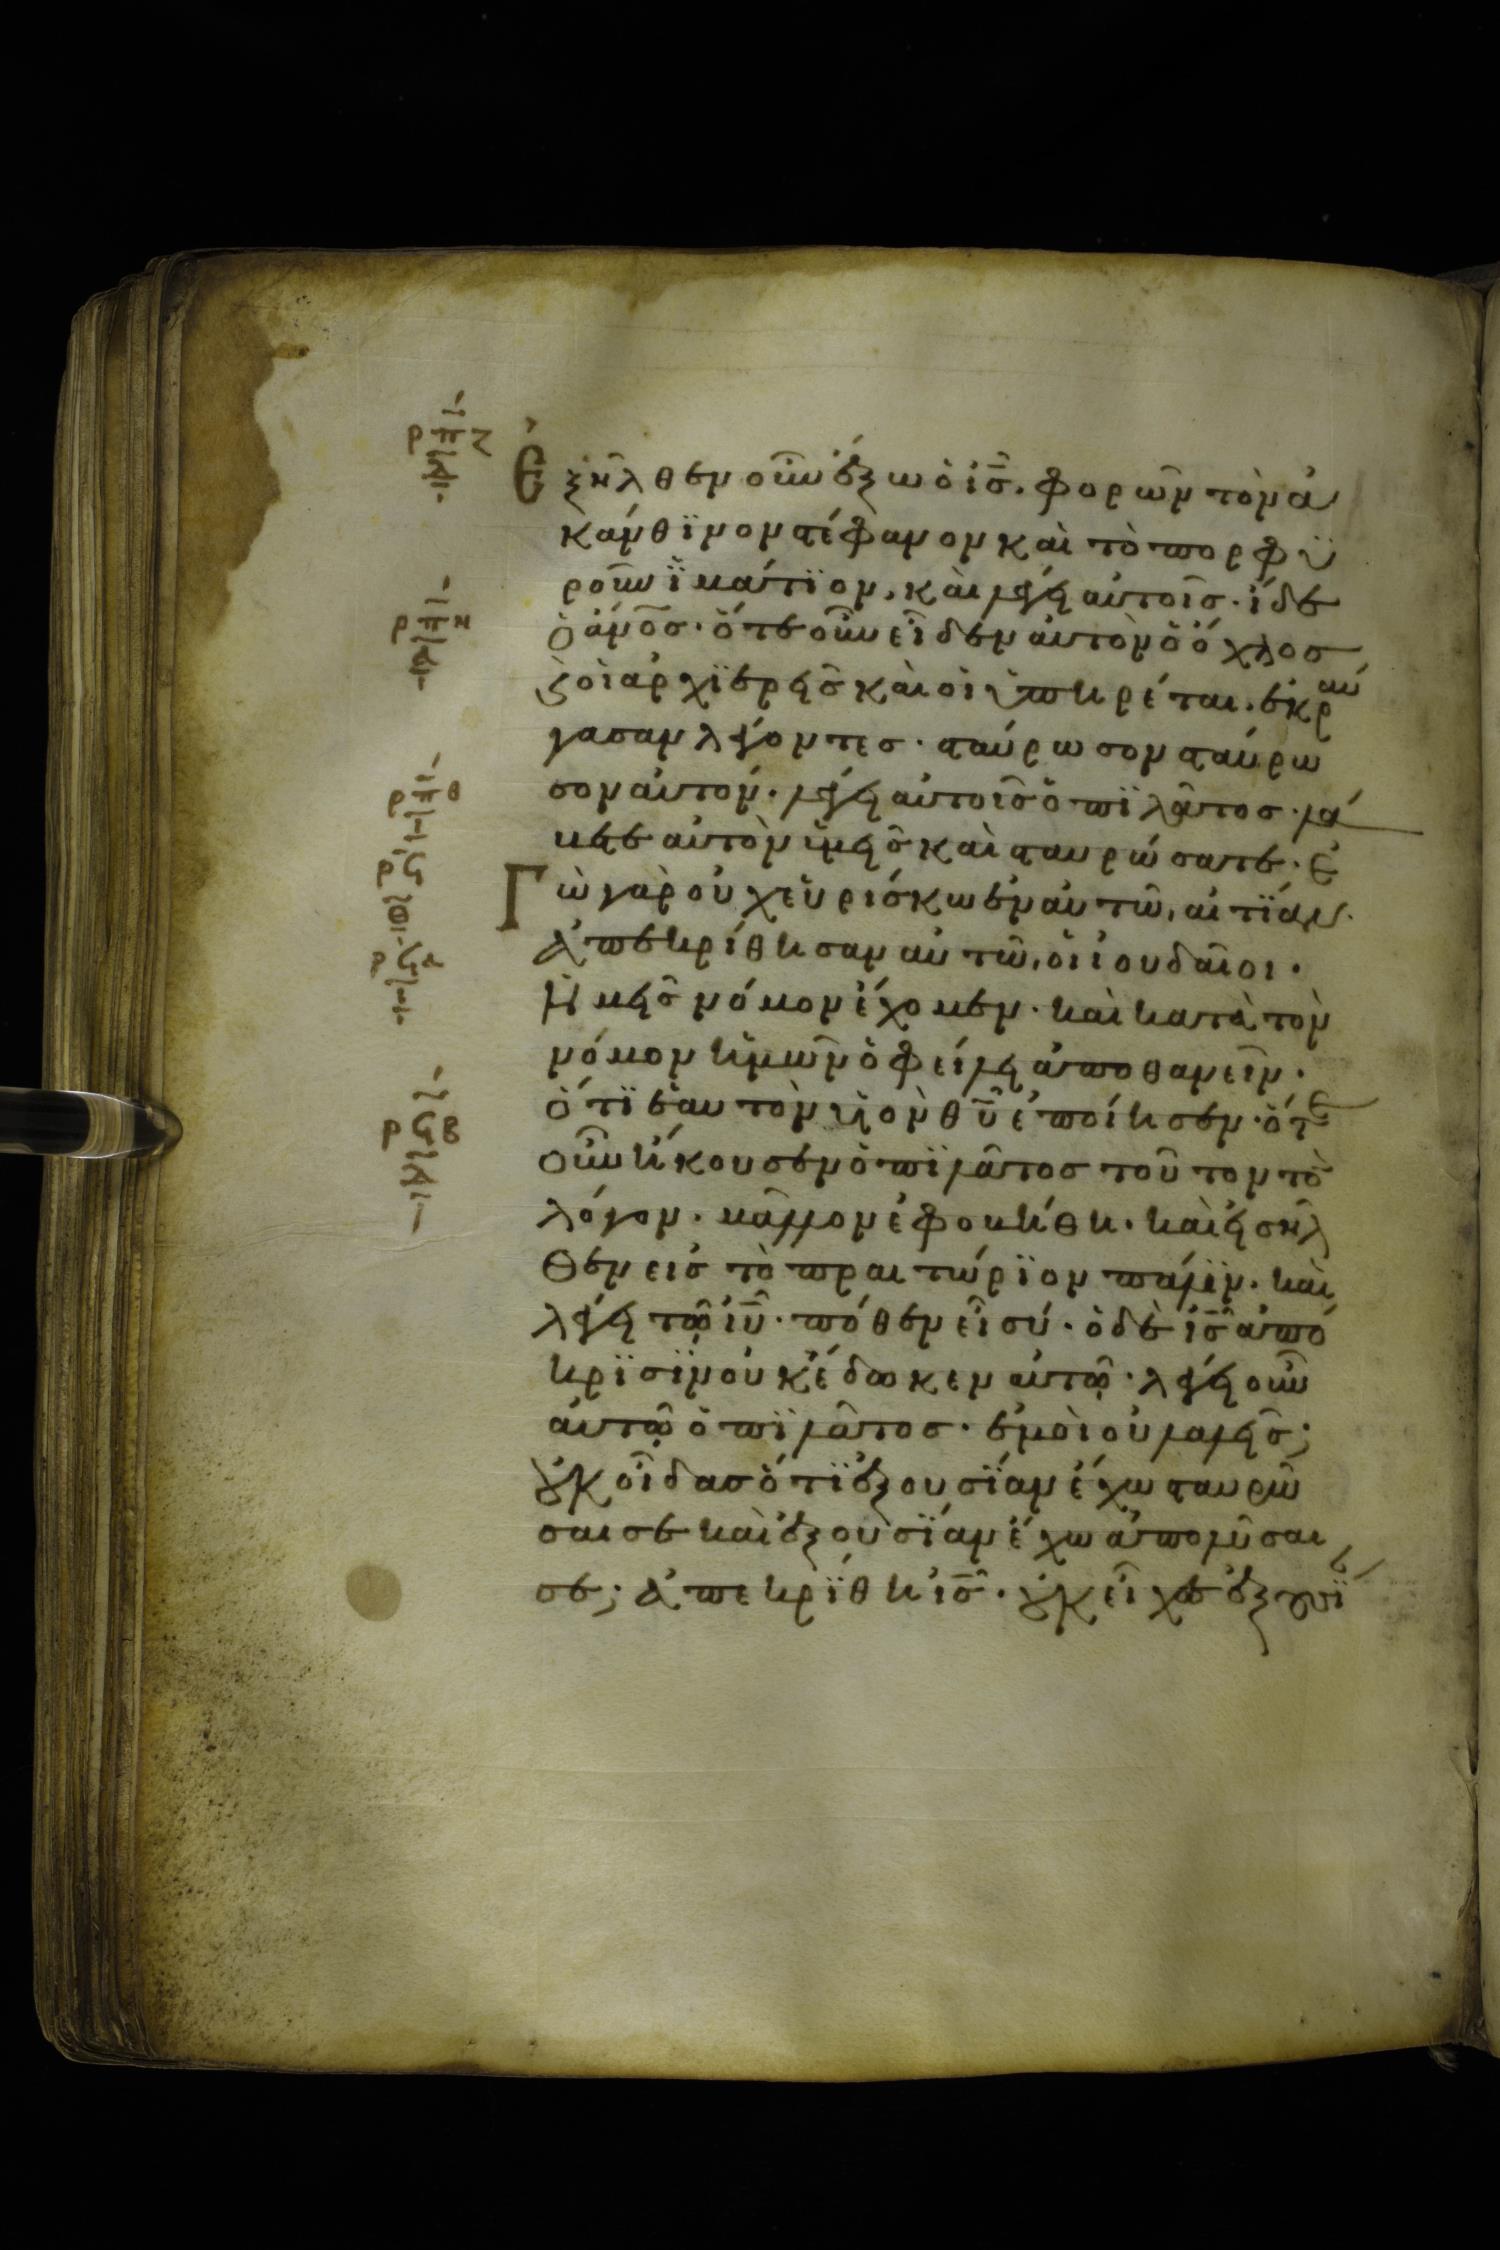 Ἐξῆλθεν οὖν ἔξω ὁ ις̅. φορῶν τὸν ἀ
κάνθϊνον στέφανον καὶ τὸ πορφϋ
ροῦν ϊμάτϊον. καὶ λέγει αὐτοῖς· ἴδε
ὁ ἀν̅ο̅ς· ὅτε οὖν εἶδεν αὐτὸν ὁ ὄχλος
ϗ οἱ ἀρχϊερεῖς καὶ οἱ ὑπηρέται. ἐκραύ
γασαν λέγοντες· σταύρωσον σταύρω
σον αὐτόν. λέγει αὐτοῖς ὁ πϊλᾶτος· λά
βετε αὐτὸν ὑμεῖς καὶ σταυρώσατε. ἐ
Γὼ γὰρ οὐχ εὑρίσκω ἐν αὐτῶ, αἰτϊάν.
ἀπεκρίθησαν αὐτῶ, οἱ ἰουδαῖοι.
ἡμεῖς νόμον ἔχομεν. καὶ κατὰ τὸν
νόμον ἡμῶν ὀφείλει ἀποθανεῖν.
ὅτϊ ἑαυτὸν υἱὸν θ̅υ̅ ἐποίησεν. ὅτε
οὖν ἤκουσεν ὁ πϊλᾶτος τοῦτον τὸ
λόγον. μᾶλλον ἐφοβήθη. καὶ εἰσῆλ
θεν εἰς τὸ πραιτώρϊον πάλϊν. καὶ
λέγει τῶ ι̅υ̅· πόθεν εἶ σύ. ὁ δὲ ι̅ς̅ ἀπό
κρϊσϊν οὐκ ἔδωκεν αὐτῶ. λέγει οὖν
αὐτῶ ὁ πϊλᾶτος. ἐμοὶ οὐ λαλεῖς;
οὐκ οἶδας ὅτϊ ἐξουσϊαν ἔχω σταυρῶ
σαι σε καὶ ἐξουσϊαν ἔχω ἀπολῦσαι
σε; ἀπεκρϊθη ι̅ς̅. οὐκ εἶχες ἐξουσϊ